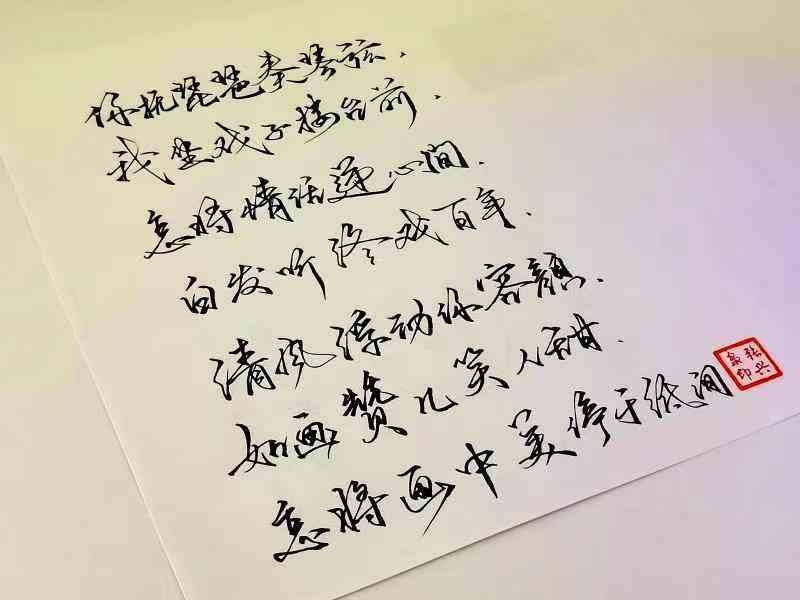 你抚琵琶奏琴弦、
我坐戏子楼台前、
怎将情话递心间、
白发听终戏百年、
清风浮动你容颜、
如画赞几笑人甜、
怎将画中美停于纸间
张兴
泉印